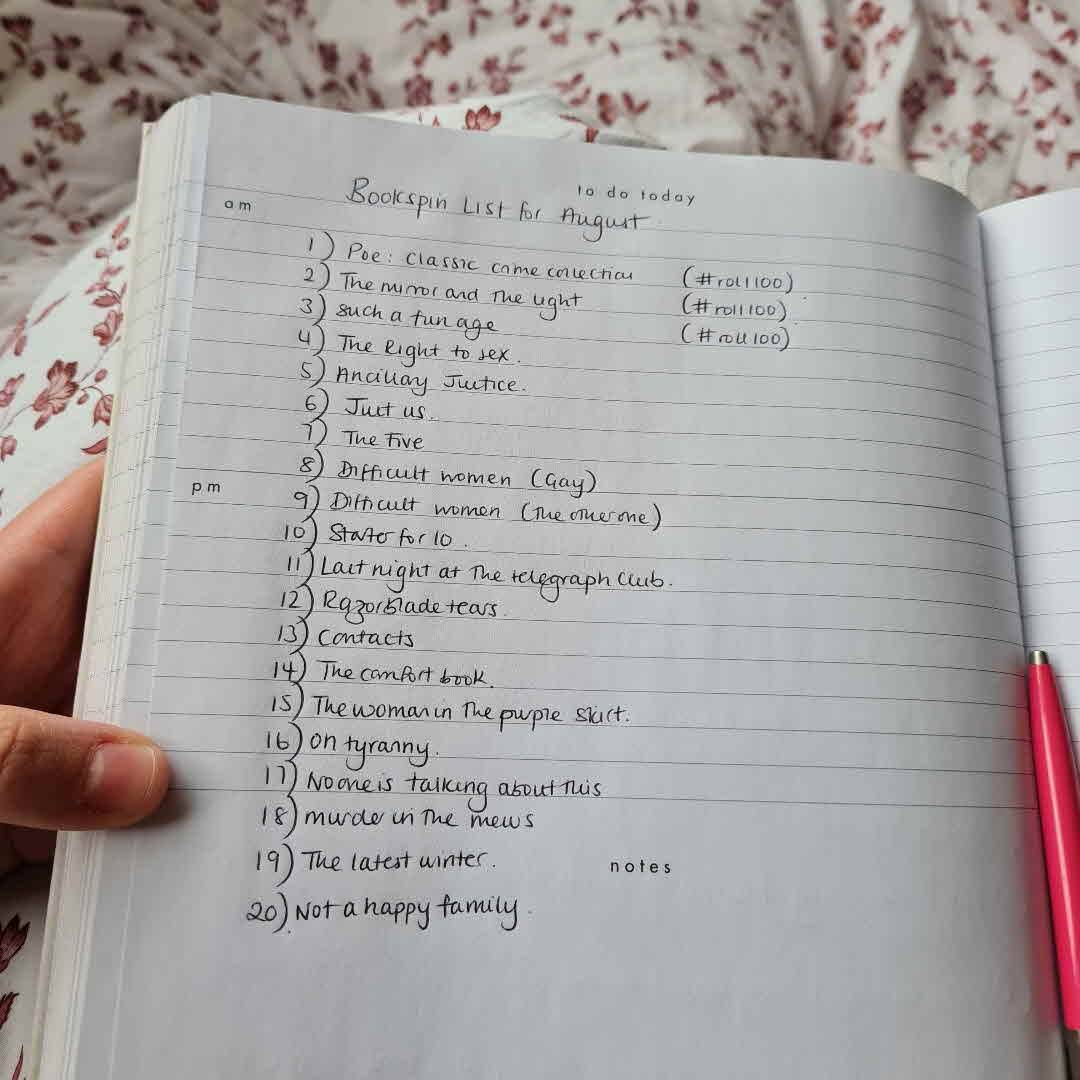 to do today
Bookspin List for August
am
1) Poe: Classic crime collection (#roll100)
2) The mirror and The light (#roll100)
3) such a fun age (#roll100)
4) The Right to sex.
5) Ancillay Justice.
6) Just us.
7) The Five
8) Difficult women (Gay)
pm
9) Difficult women (The other one)
10) Starter for 10.
11) Last night at The telegraph Club.
12) Razorblade tears.
13) Contacts
14) The comfort book.
15) The woman in The purple skirt.
16) On tyranny.
17) No one is talking about This
18) murder in The mews
19) The latest winter.
notes
20) Not a happy family.